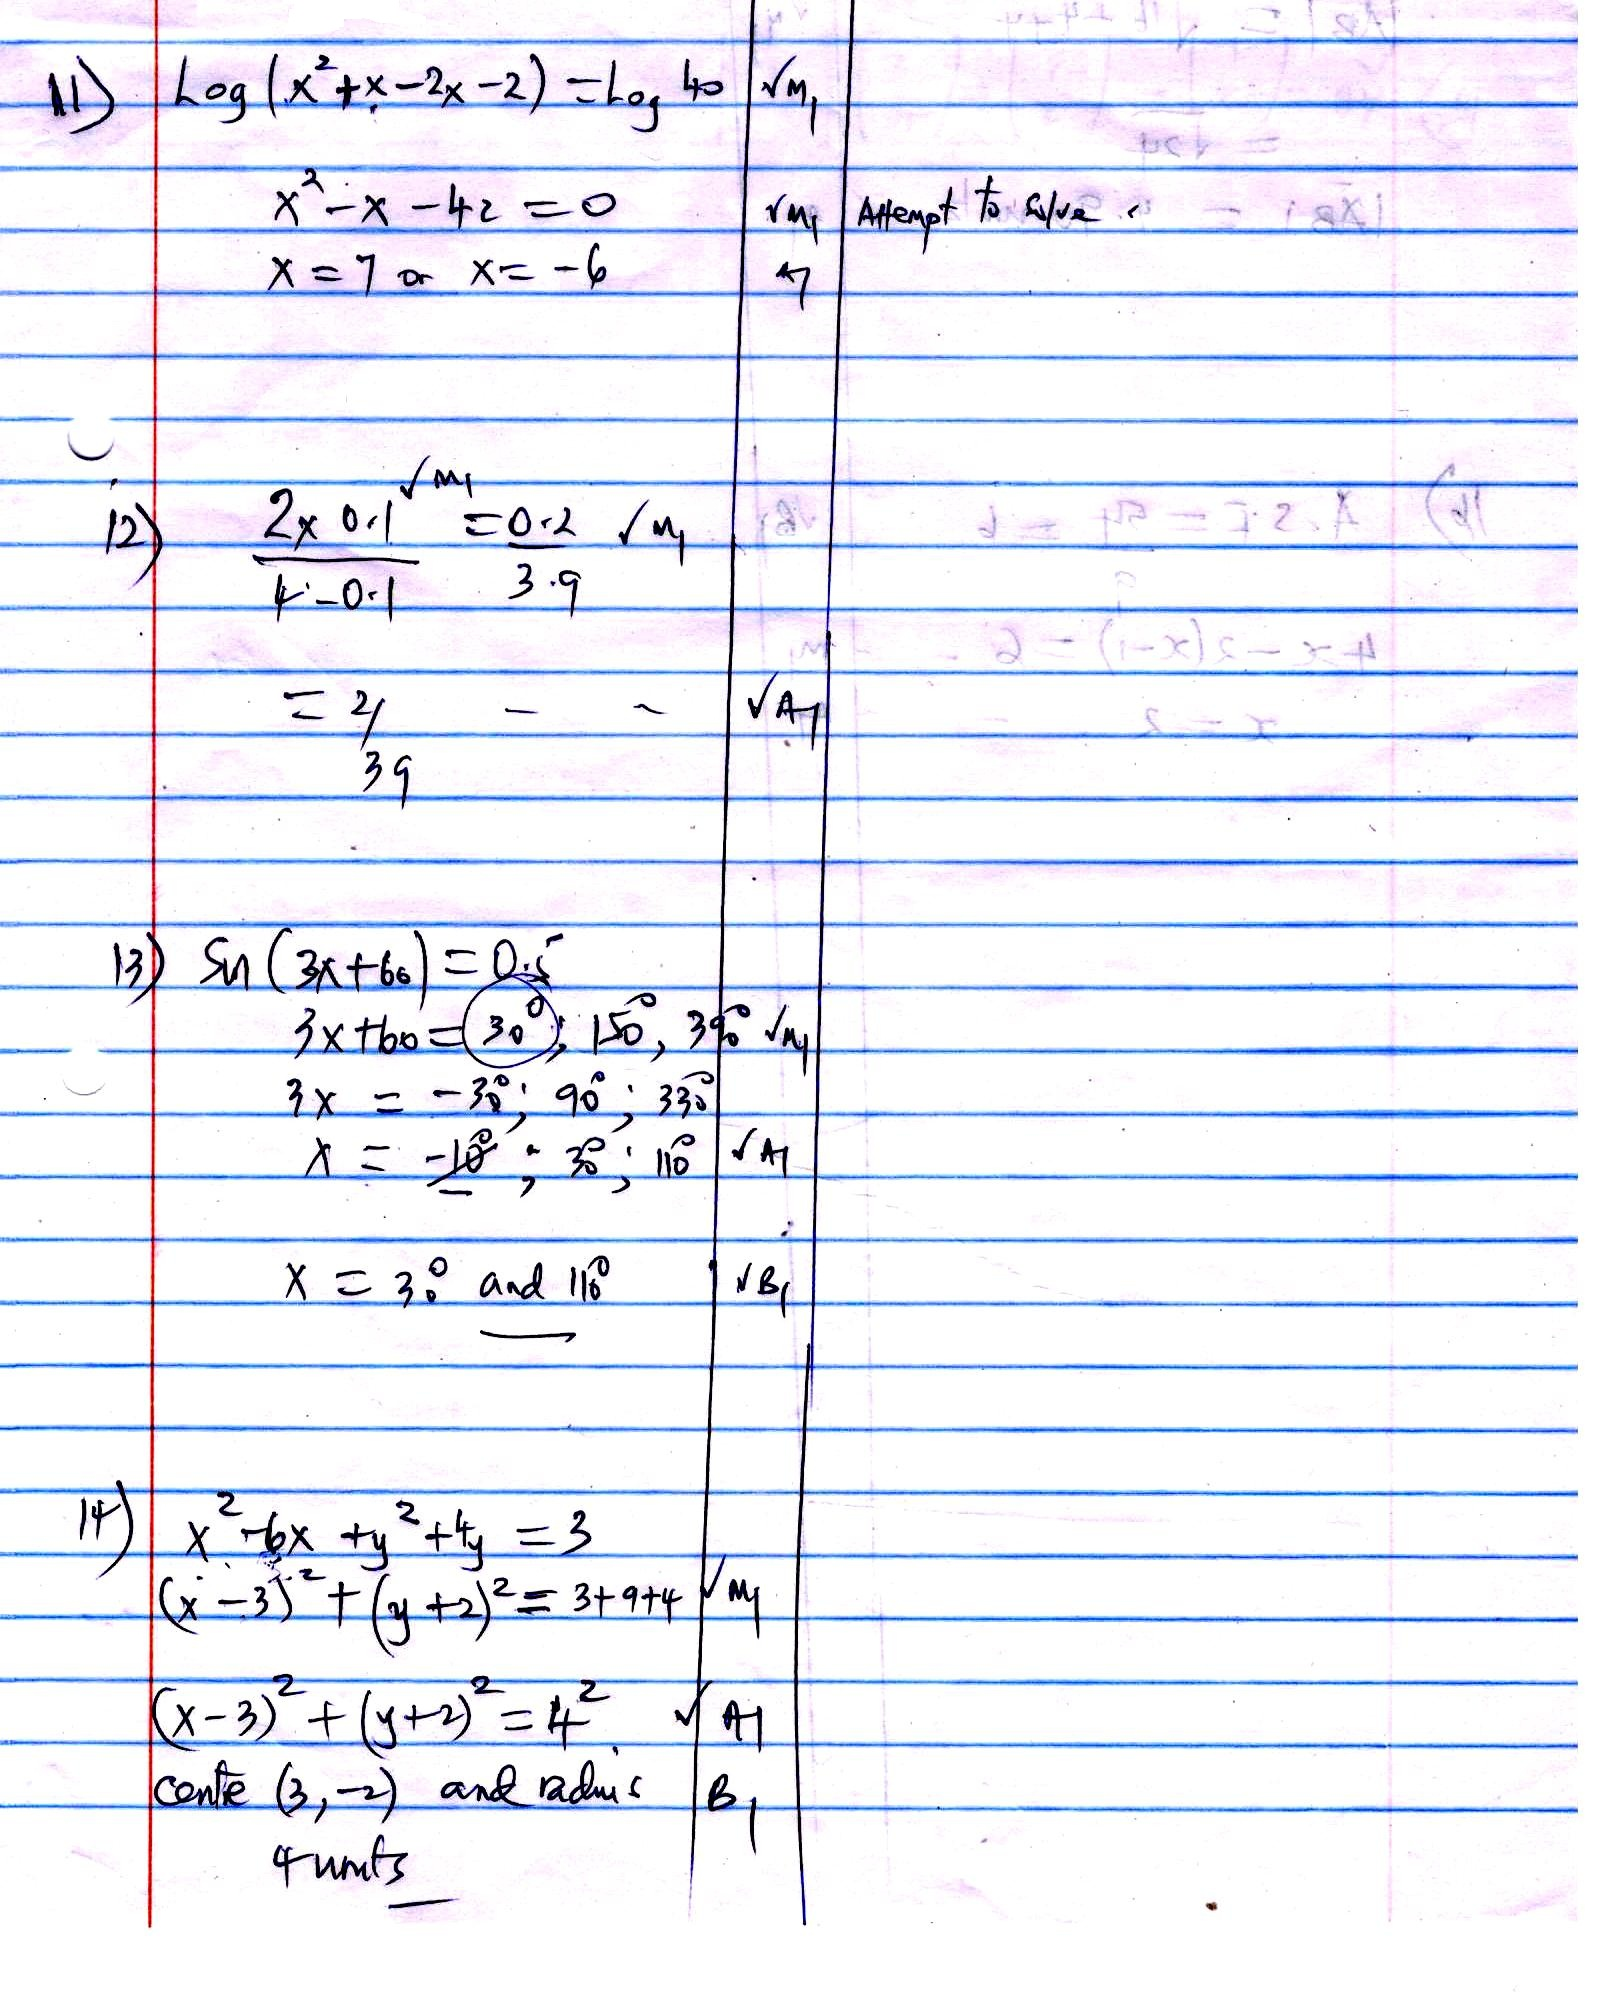 11) Log (x²+x-2x-2) = Log 40 √M1
x²-x-42=0 √M1 Attempt to solve.
x=7 or x=-6 A1
√M1
12) 2x0.1 = 0.2 √M1
4-0.1 3.9
= 2/ - - √A1
39
13) Sin (3x+60) = 0.5
3x+60 = 30°; 150°, 390° √M1
3x = -30°; 90°; 330°
x = -10°; 30°; 110° √A1
x = 30° and 110° √B1
14) x²-6x+y²+4y = 3
(x-3)²+(y+2)² = 3+9+4 √M1
(x-3)²+(y+2)² = 4² √A1
centre (3,-2) and radius B1
4 units